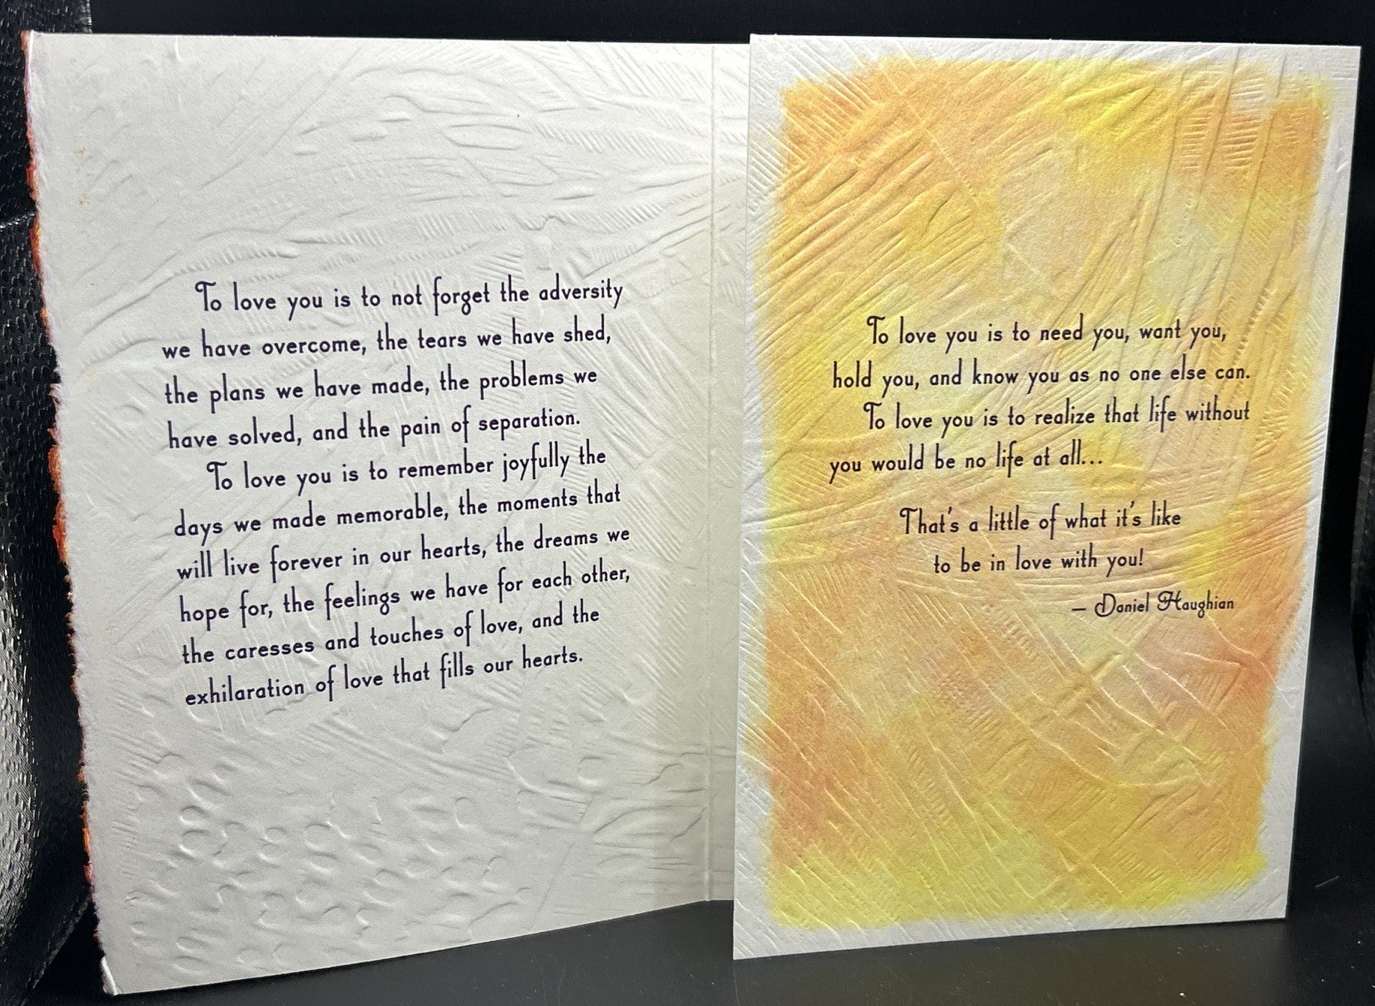 To love you is to not forget the adversity
we have overcome, the tears we have shed,
the plans we have made, the problems we
have solved, and the pain of separation.
To love you is to remember joyfully the
days we made memorable, the moments that
will live forever in our hearts, the dreams we
hope for, the feelings we have for each other,
the caresses and touches of love, and the
exhilaration of love that fills our hearts.
To love you is to need you, want you,
hold you, and know you as no one else can.
To love you is to realize that life without
you would be no life at all...
That's a little of what it's like
to be in love with you!
— Daniel Haughian